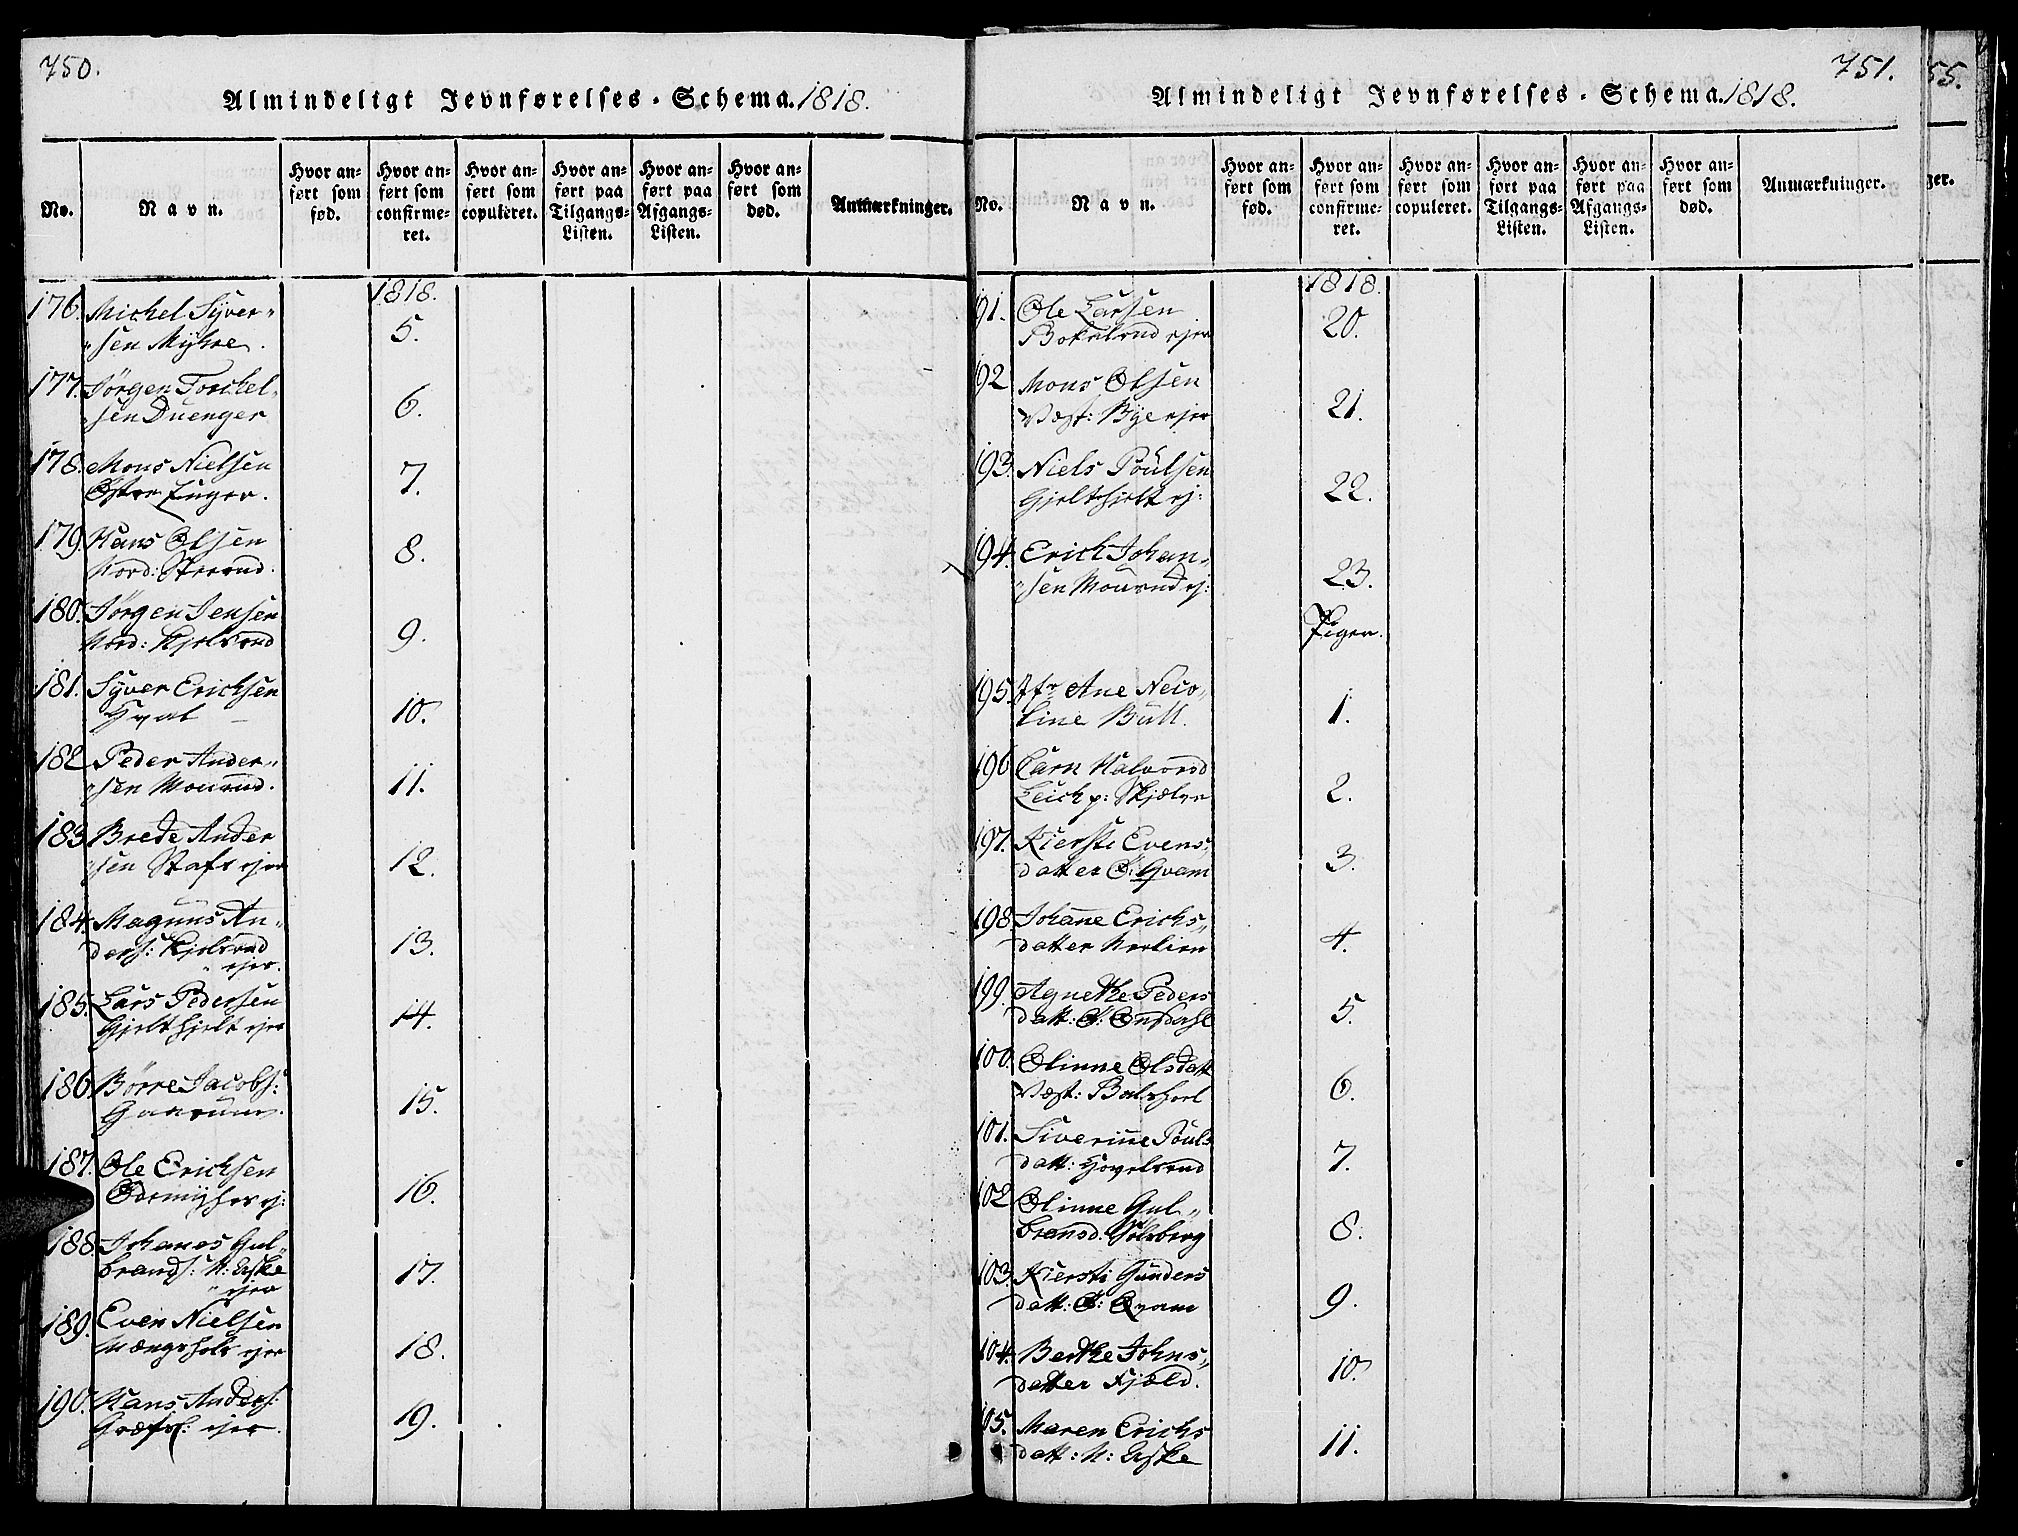 750.
Almindeligt Jevnførelses-Schema. 1818.
No.
Navn.
Hvor anført som født.
Hvor anført som confirmeret.
Hvor anført som copuleret.
Hvor anført paa Tilgangs-Listen.
Hvor anført paa Afgangs-Listen.
Hvor anført som død.
Anmærkninger.
1818.
176. Michel Syver"
"sen Myhre. 5.
177. Jörgen Torckel"
"sen Duenger 6.
178. Mons Nielsen 7.
Østre
179. Hans Olsen 8.
Nord:
180. Jörgen Jensen 9.
Nord: Kjelsrud
181. Syver Erichsen 10.
Hval
182 Peder Ander"
"sen Mourud. 11.
183 Brede Ander
"sen ejer 12.
184. Magnus An"
ders: Kjelsrud 13.
" ejer.
185. Lars Pedersen 14.
ejer
186. Börre Jacobs: 15.
187. Ole Erichsen 16.
ej:
188. Johanes Gul"
brands: N: Aske 17.
" ejer
189. Even Nielsen 18.
ejer
190. Hans Anders: 19.
ejer.
751.
Almindeligt Jevnførelses-Schema. 1818.
No.
Navn.
Hvor anført som fød.
Hvor anført som confirmeret.
Hvor anført som copuleret.
Hvor anført paa Tilgangs-Listen.
Hvor anført paa Afgangs-Listen.
Hvor anført som død.
Anmærkninger.
1818.
191. Ole Larsen 20.
ejer
192 Mons Olsen 21.
Vest: Bye ejer
193. Niels Poulsen 22.
ej:
194. Erich Johan"
"sen Mourud ej: 23.
Piger.
195. Jfr Ane Nico"
line Bull. 1.
196 Karn Halvorsd 2.
197. Kiersti Evens"
datter Ø: Qvam 3.
198. Johane Erichs"
datter 4.
199. Agnethe Peders
datt: Ø: 5.
100. Olinne Olsdatt 6.
Vest:
101. Siverine Pouls
datt: Hovelsrud 7.
102 Olinne Gul"
bransd: Solberg 8.
103. Kiersti Gunders
datt: Ø: Qvam 9.
104. Berthe Johns"
datter Fjæld. 10.
105. Maren Erichs
datt: N: Aske 11.
55.